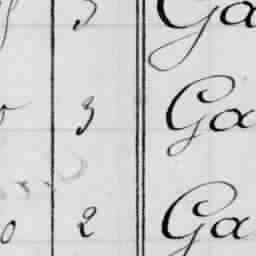 3 Ga
3 Ga
0 2 Ga